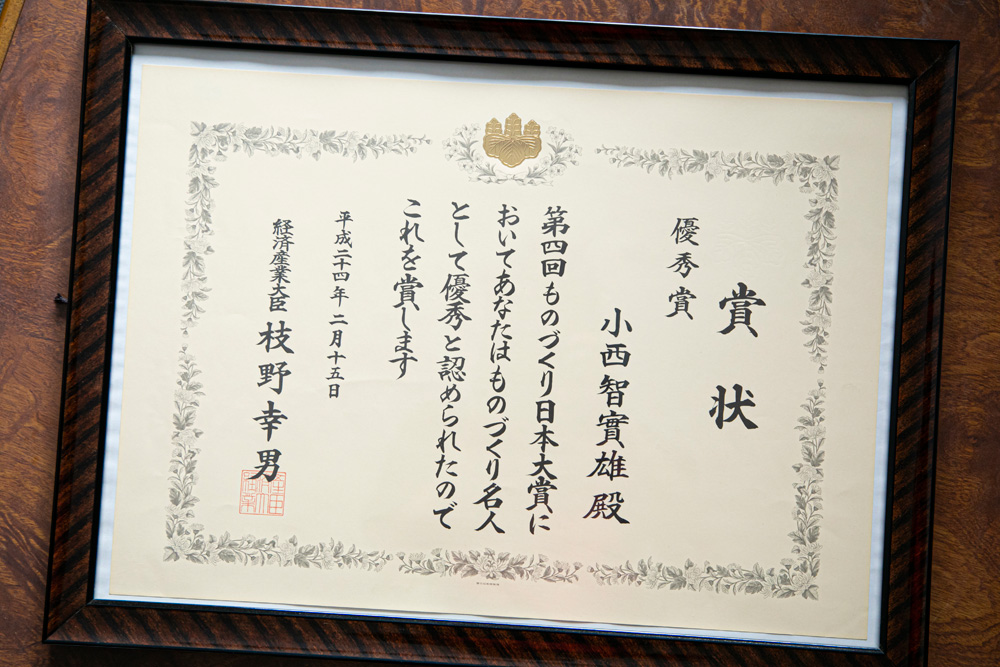 賞状
優秀賞
小西智實雄殿
第四回ものづくり日本大賞に
おいてあなたはものづくり名人
として優秀と認められたので
これを賞します
平成二十四年二月十五日
経済産業大臣 枝野幸男